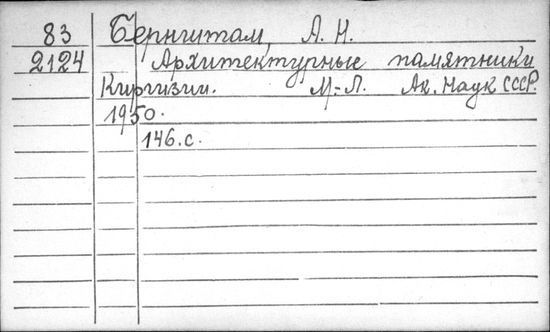 83 Бернштам, А. Н.
2124 Архитектурные памятники
Киргизии. М-Л. Ак. Наук СССР.
1950.
146.с.